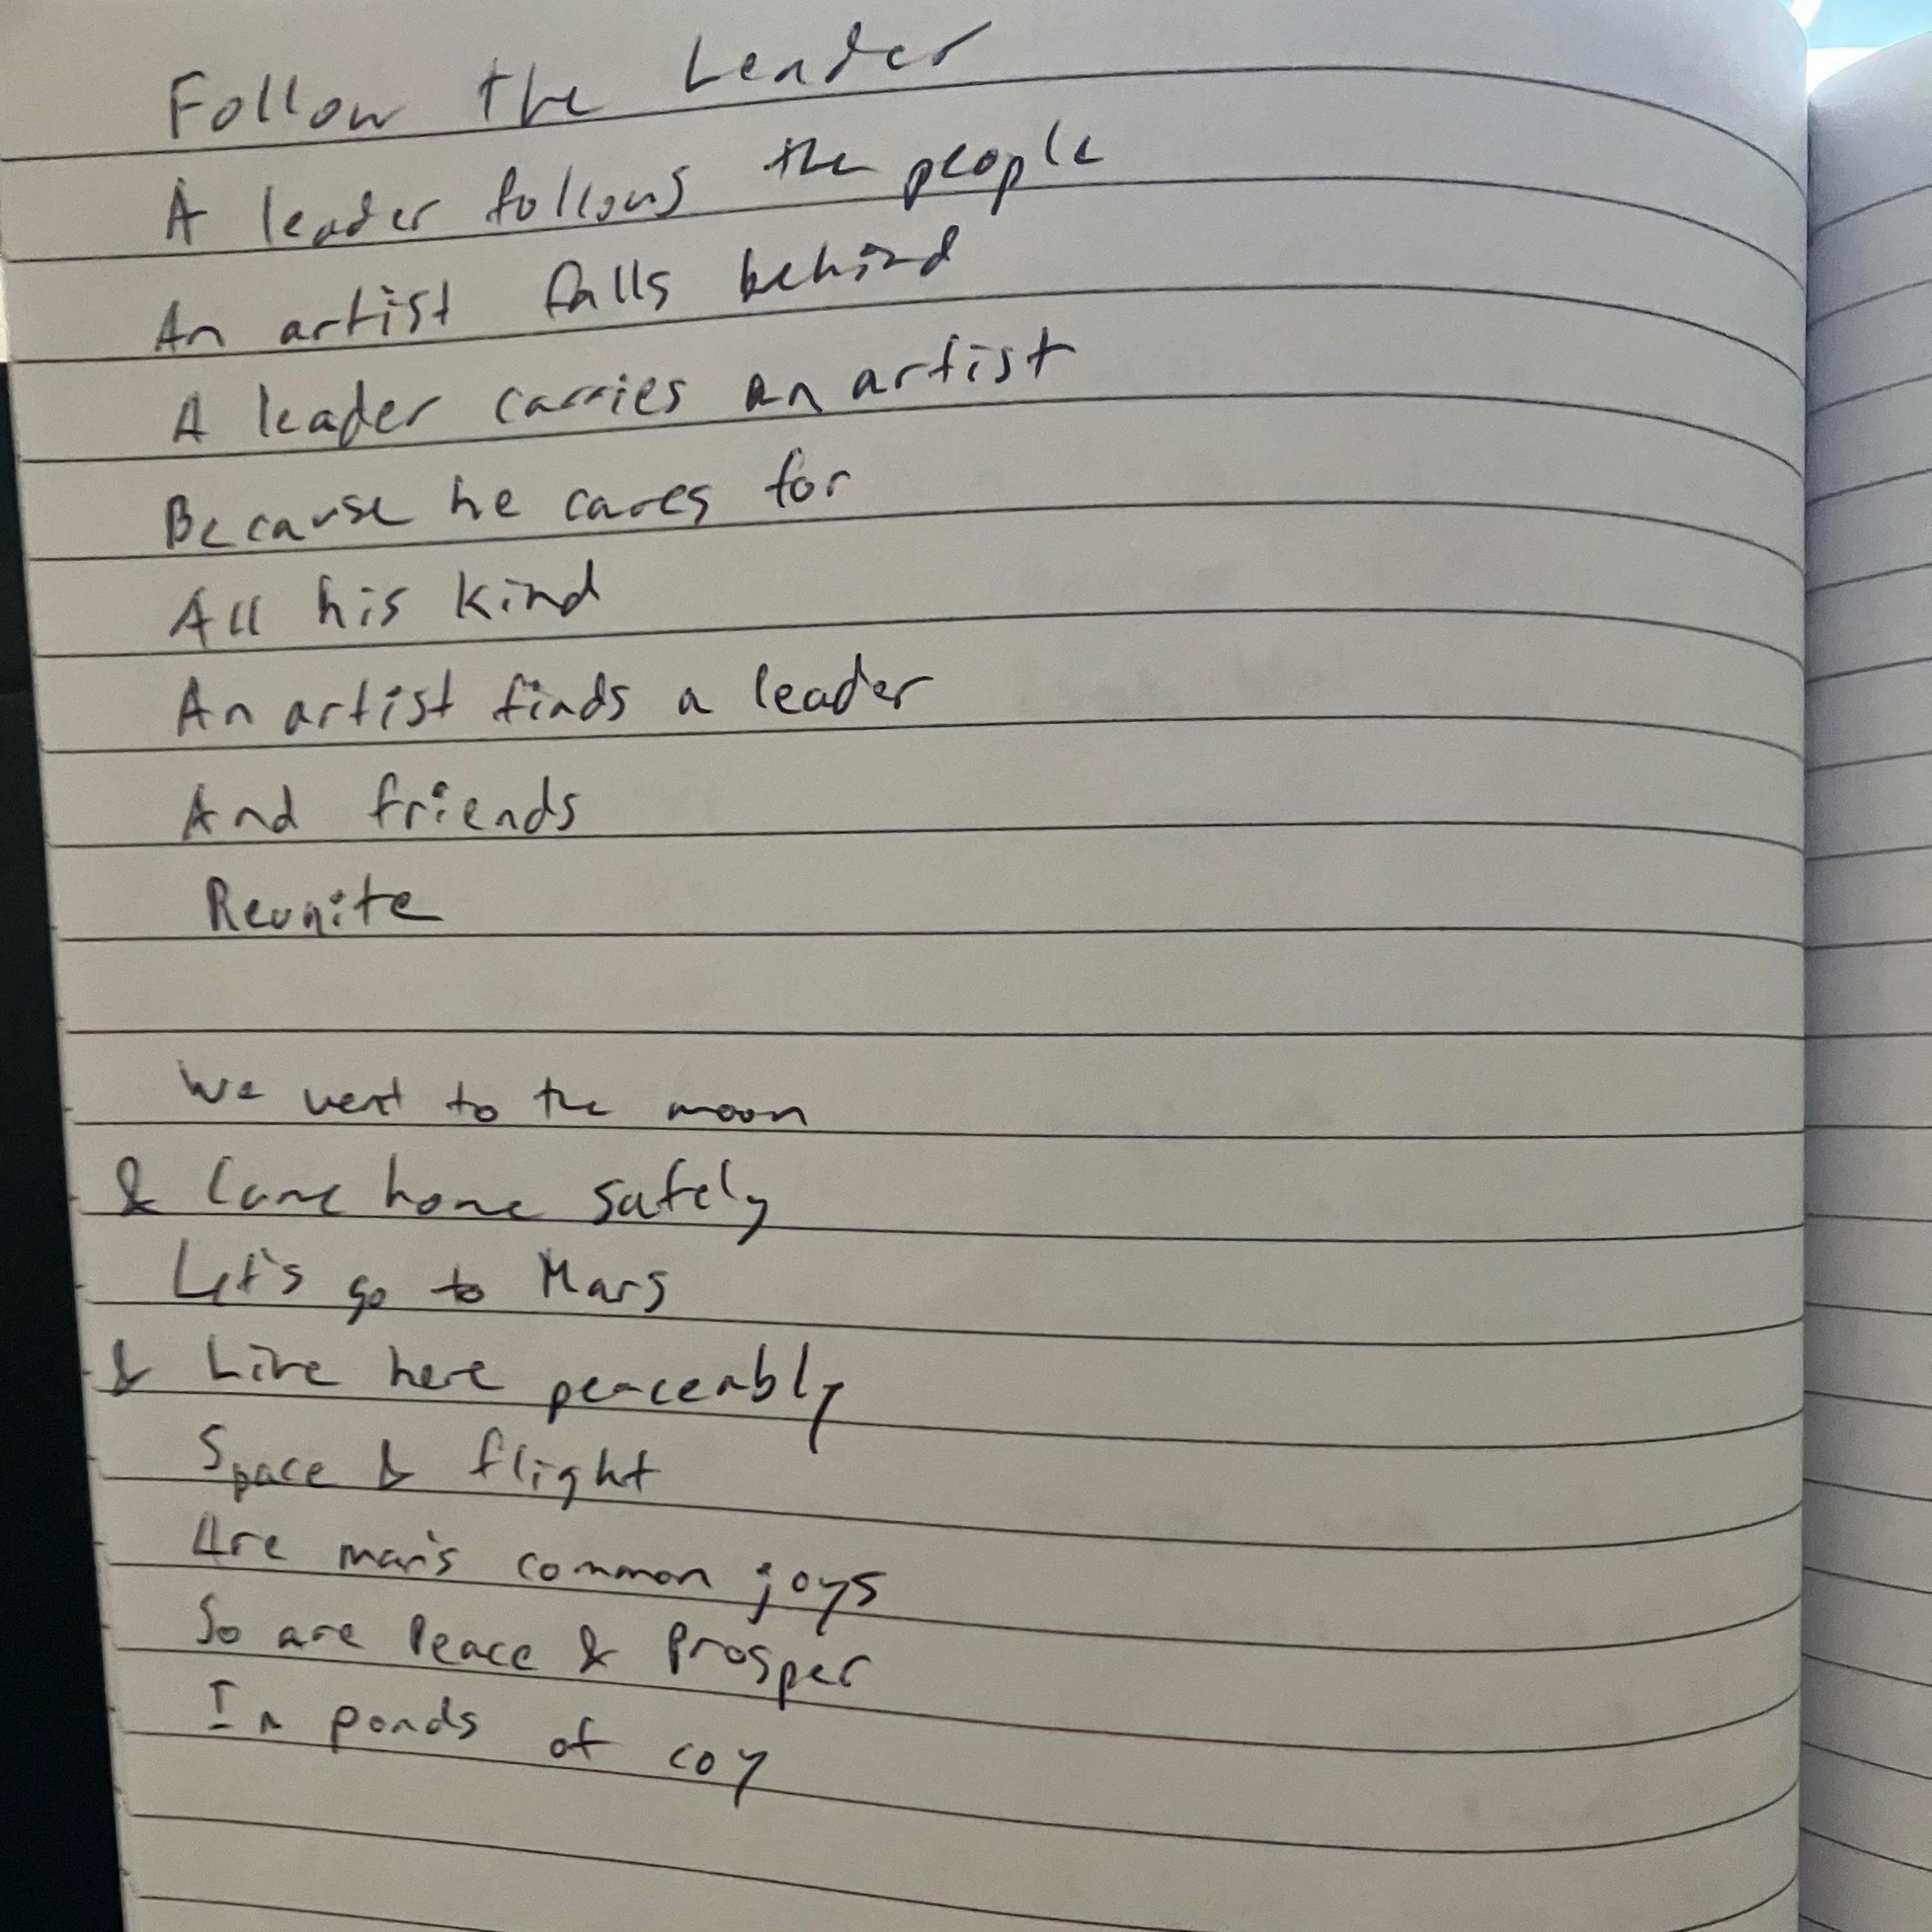 Follow the Leader
A leader follows the people
An artist falls behind
A leader carries an artist
Because he cares for
All his kind
An artist finds a leader
And friends
Reunite
We went to the moon
& Came home safely
Let's go to Mars
& Live here peaceably
Space & flight
Are man's common joys
So are Peace & Prosper
In ponds of coy